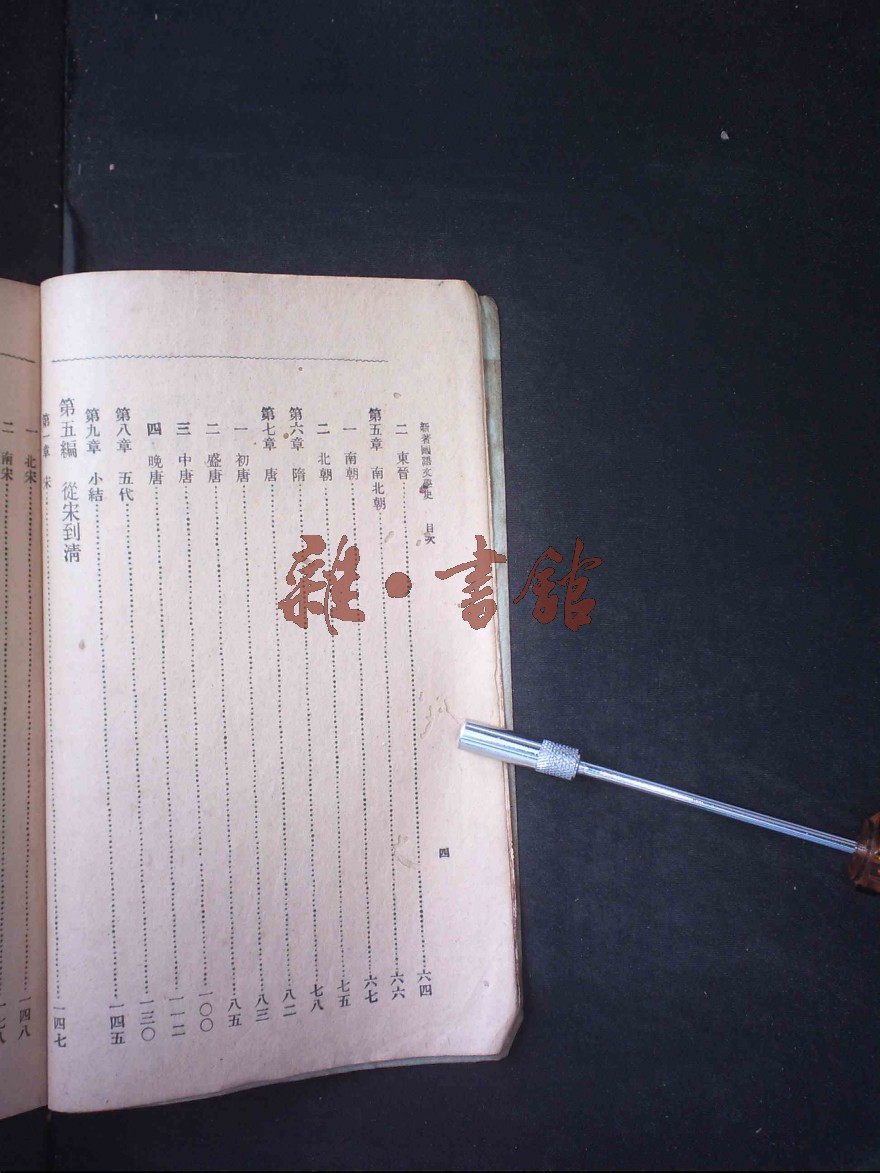 新著國語文學史 目次 四
二 東晉……六四
第五章 南北朝……六六
一 南朝……六七
二 北朝……七五
第六章 隋……七八
第七章 唐……八二
一 初唐……八三
二 盛唐……八五
三 中唐……一〇〇
四 晚唐……一一二
第八章 五代……一三〇
第九章 小結……一四五
第五編 從宋到清
第一章 宋……一四七
一 北宋……一四八
二 南宋……一七八
雜·書館